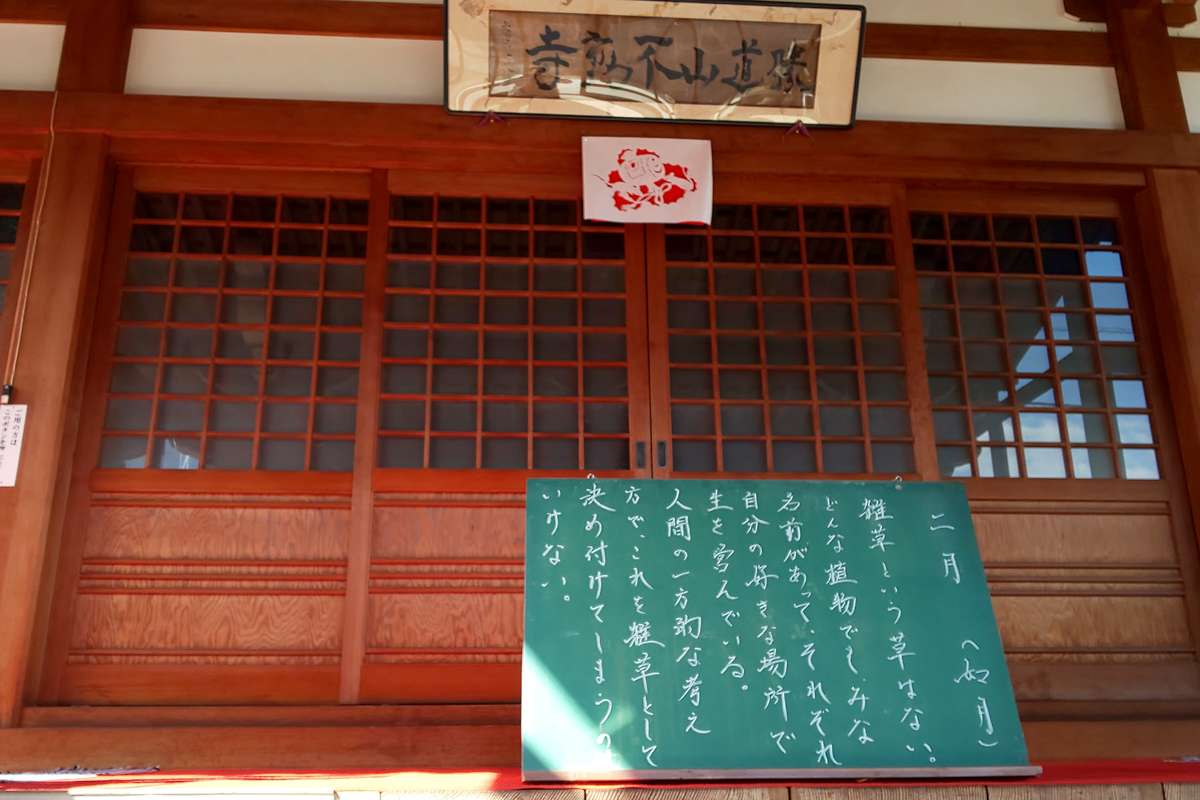 勝道山不動寺
二月（如月）
雑草という草はない。
どんな植物でも、みな
名前があって、それぞれ
自分の好きな場所で
生を営んでいる。
人間の一方的な考え
方で、これを雑草として
決め付けてしまうの
いけない。
ご用の方は
このボタンを